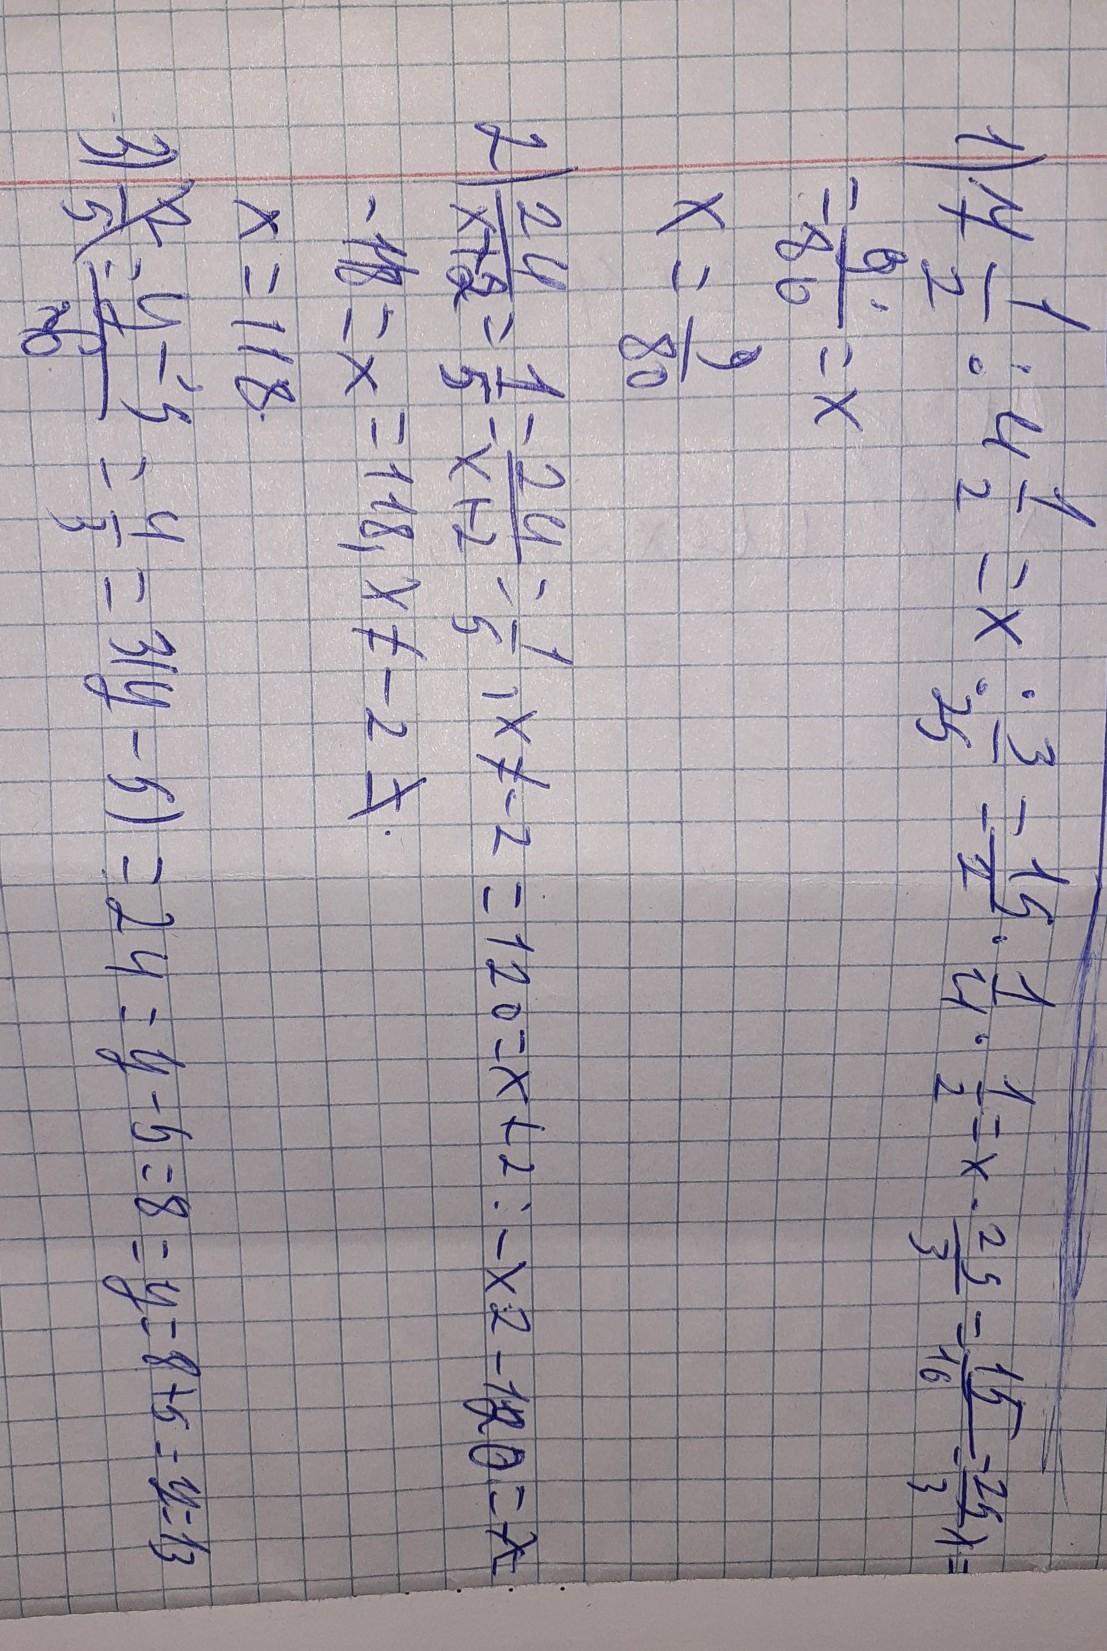 1) 1/2 : 4 1/2 = x : 3/25 = 15/2 · 1/4 · 1/2 = x · 25/3 = 15/16 = 25/3 x =
= 9/80 = x
x = 9/80
2) 24/x+2 = 1/5 = 24/x+2 = 1/5, x ≠ -2 = 120 = x+2 : -x2 - 120 = -x
-118 = x = 118, x ≠ -2
x = 118.
3) = 4/3 = 3(y - 5) = 24 = y - 5 = 8 = y = 8+5 = y = 13